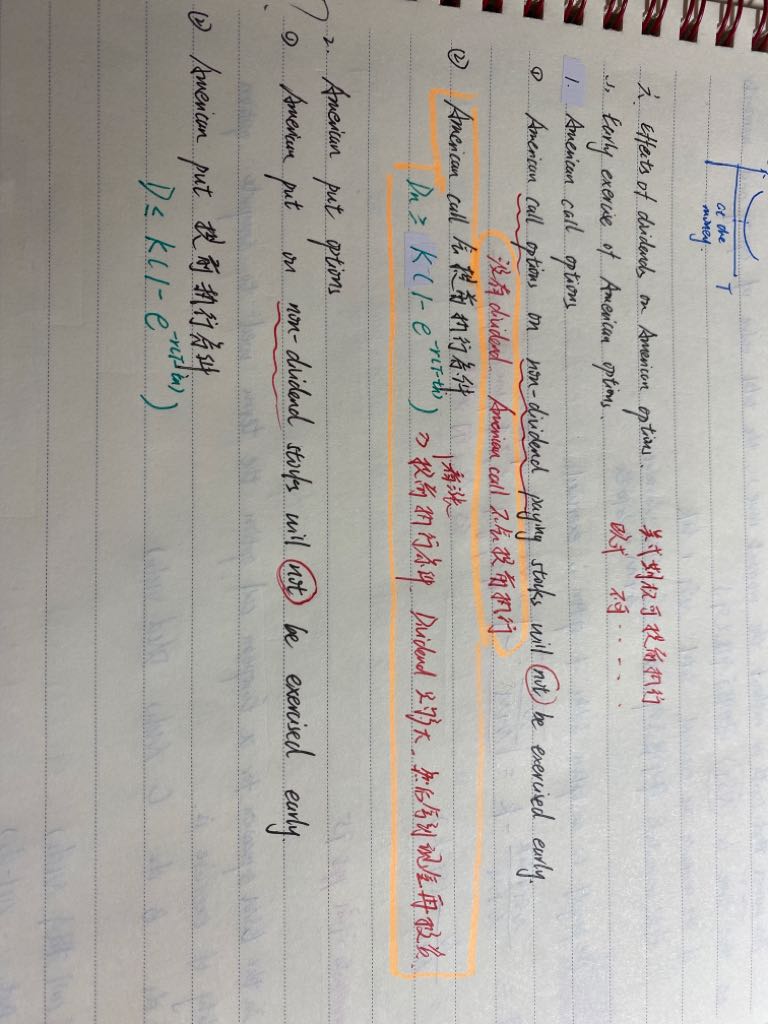 at the
money.
T
六. Effects of dividends on American options.
Early exercise of American options.
美式期权可提前执行
欧式 不可 . . . .
1. American call options
① American call options on non-dividend paying stocks will not be exercised early.
没有 dividend American call 不会提前执行
② American call 会提前执行条件
Dn ≥ K(1-e^{-r(T-tn)}) => 提前执行条件 Dividend 足够大.
2. American put options
① American put on non-dividend stocks will not be exercised early.
② American put 提前执行条件
D ≤ K(1-e^{-r(T-tn)})